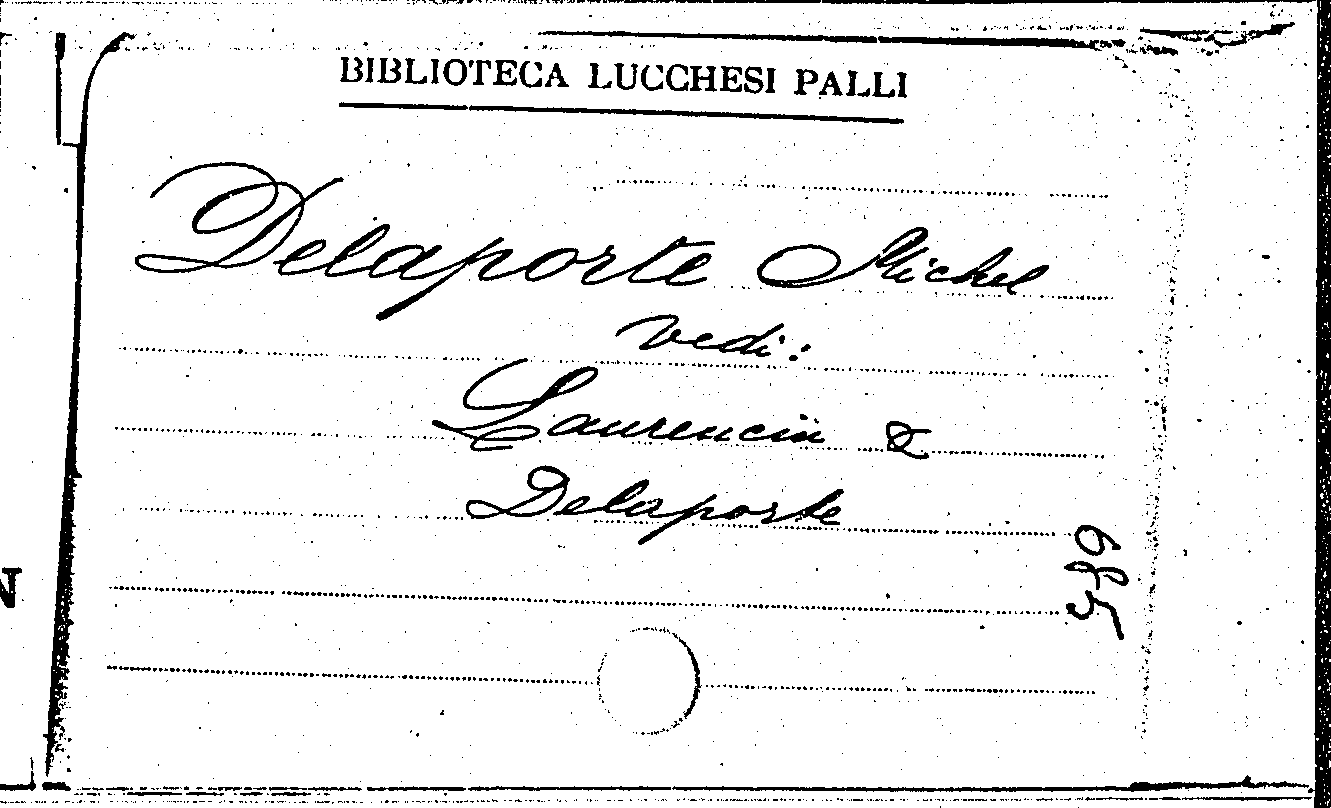 BIBLIOTECA LUCCHESI PALLI
Delaporte Michel
vedi:
Laurencin &
Delaporte
N